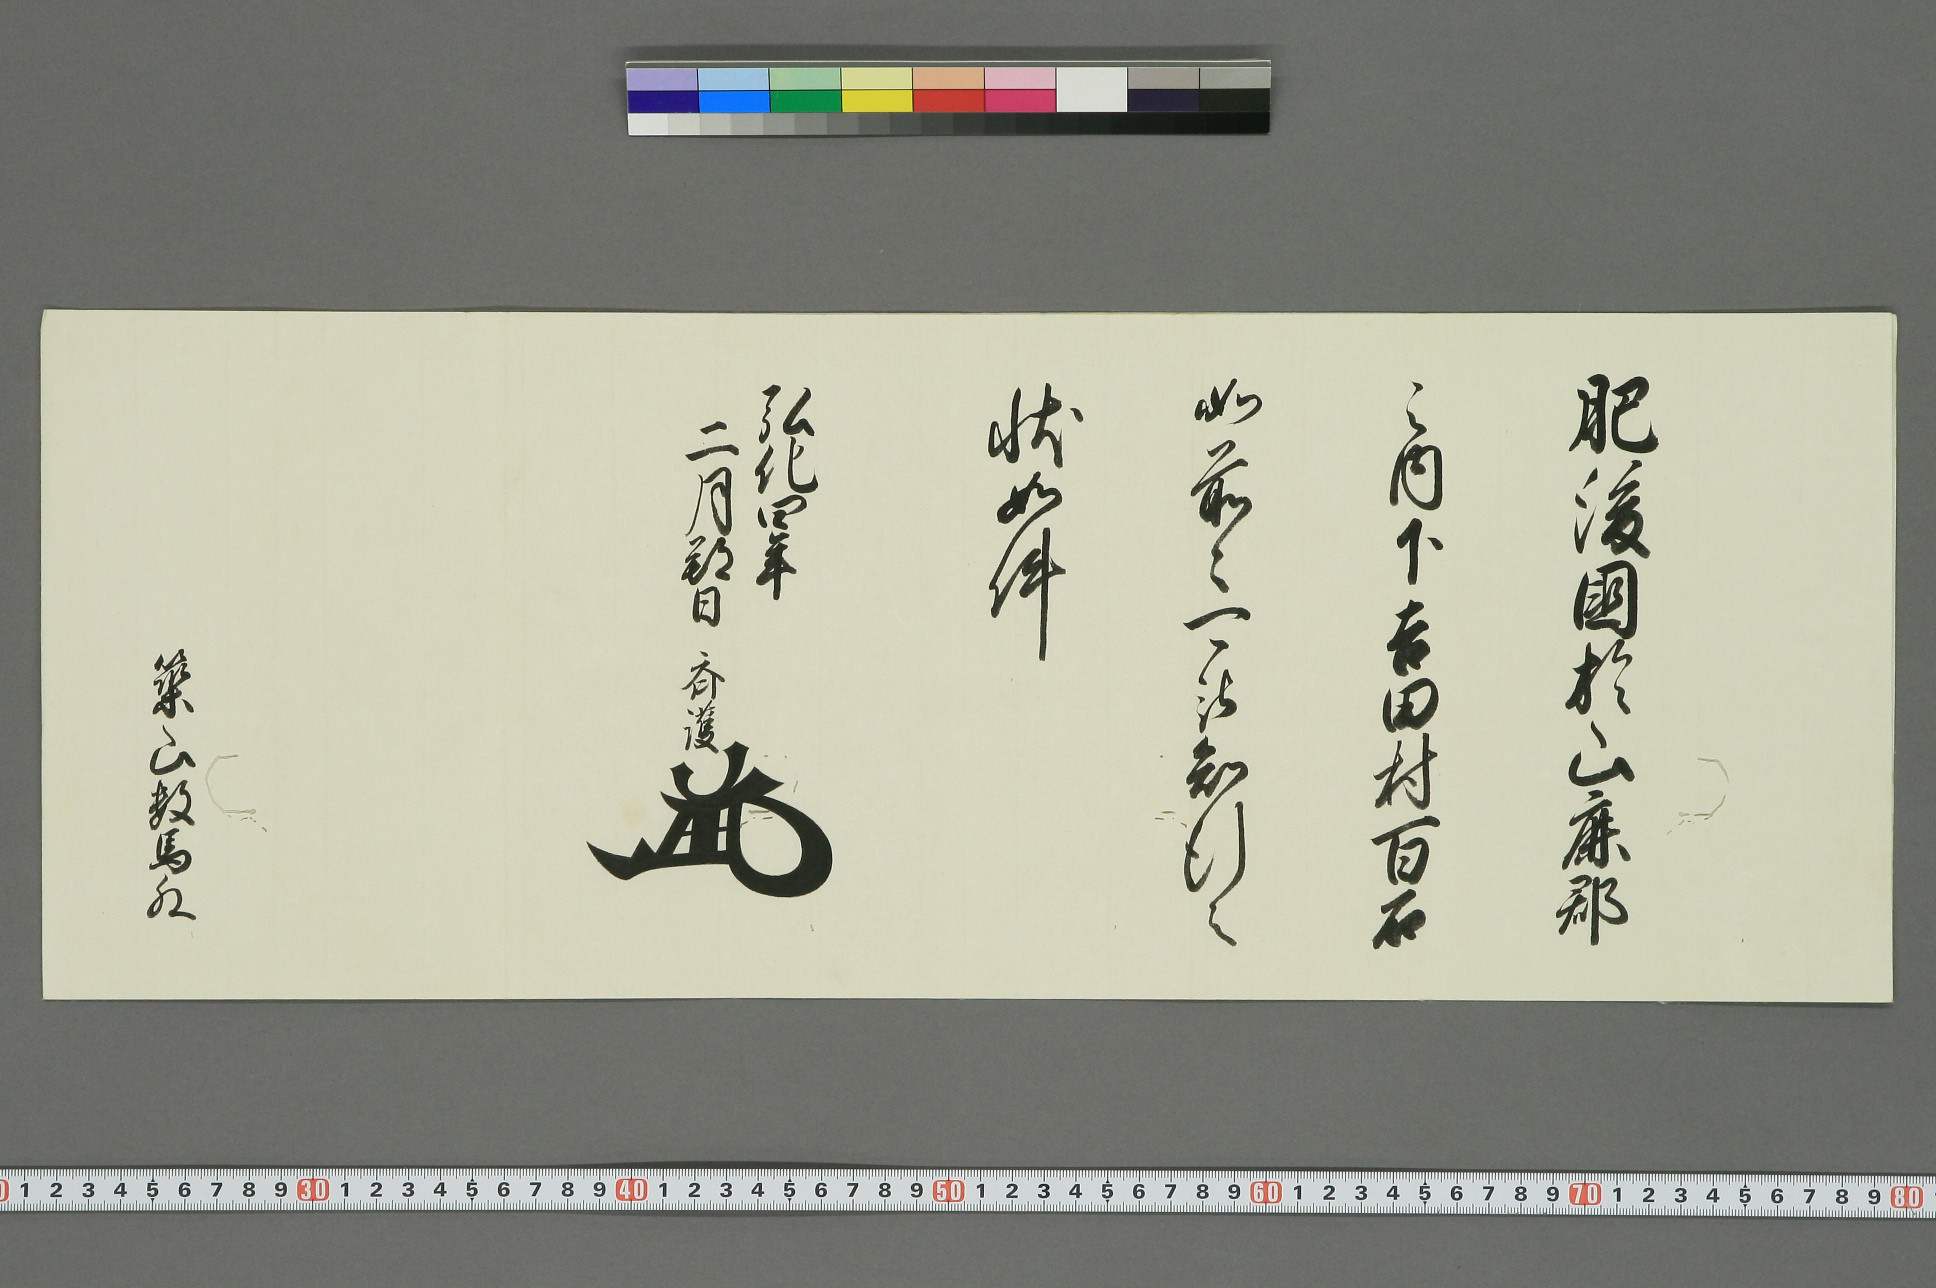 肥後國於山鹿郡
之内下吉田村百石
如前々知行之
状如件
弘化四年
二月朔日 斉護
築山数馬
1 2 3 4 5 6 7 8 9 30 1 2 3 4 5 6 7 8 9 40 1 2 3 4 5 6 7 8 9 50 1 2 3 4 5 6 7 8 9 60 1 2 3 4 5 6 7 8 9 70 1 2 3 4 5 6 7 8 9 80